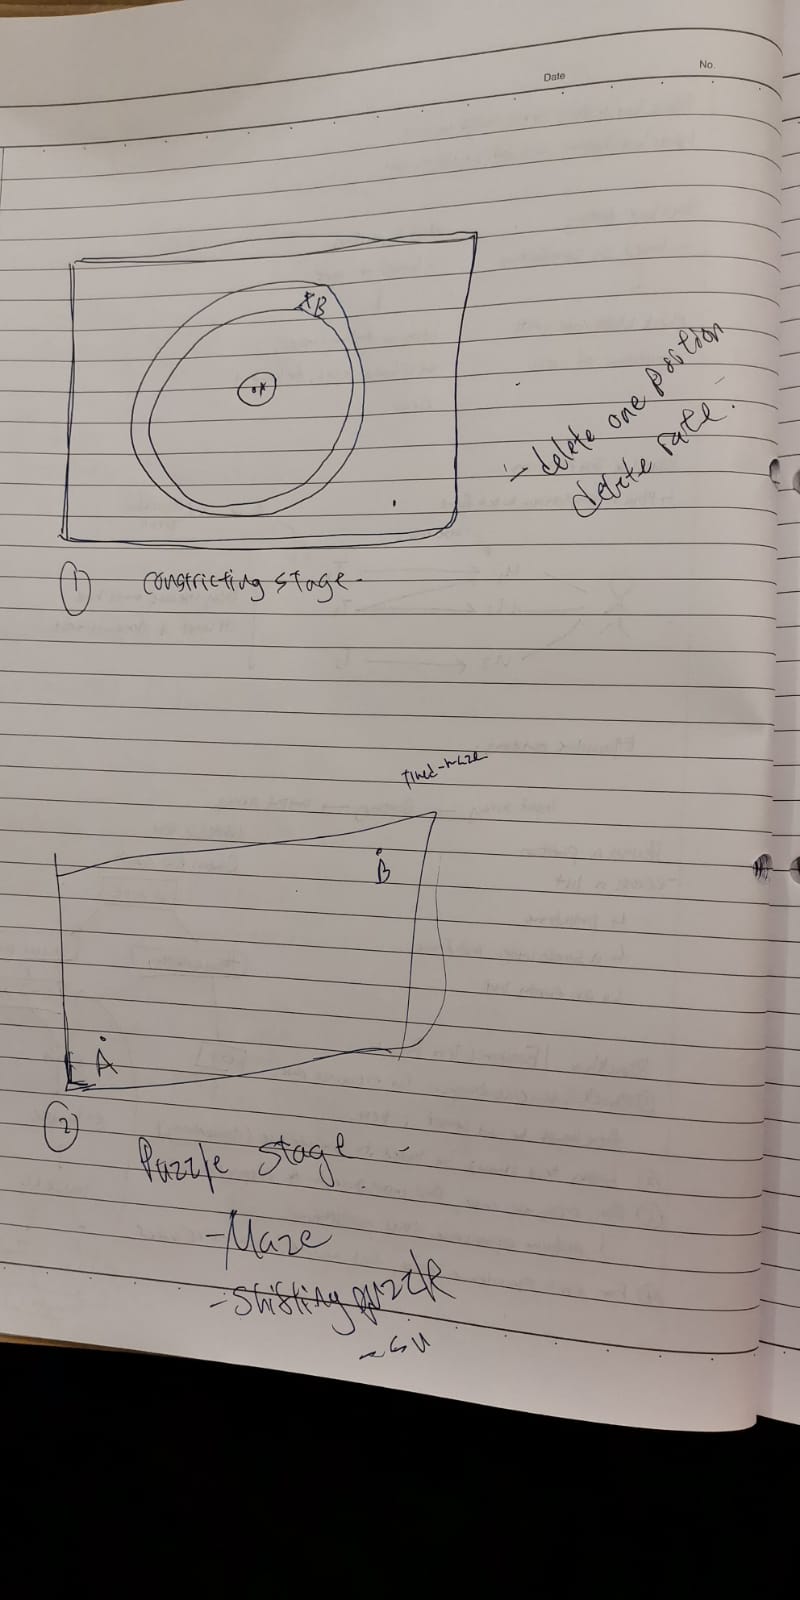 Date
No.
B
- delete one position
delete rate.
① constricting stage -
timed-maze
B
A
② Puzzle stage -
- Maze
- Shifting puzzle